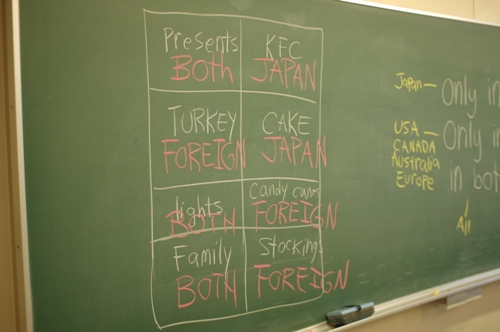 Presents KFC
BOTH JAPAN
TURKEY CAKE
FOREIGN JAPAN
lights Candy canes
BOTH FOREIGN
Family Stockings
BOTH FOREIGN
Japan — Only in
USA — Only i
CANADA
Australia
Europe in bot
All